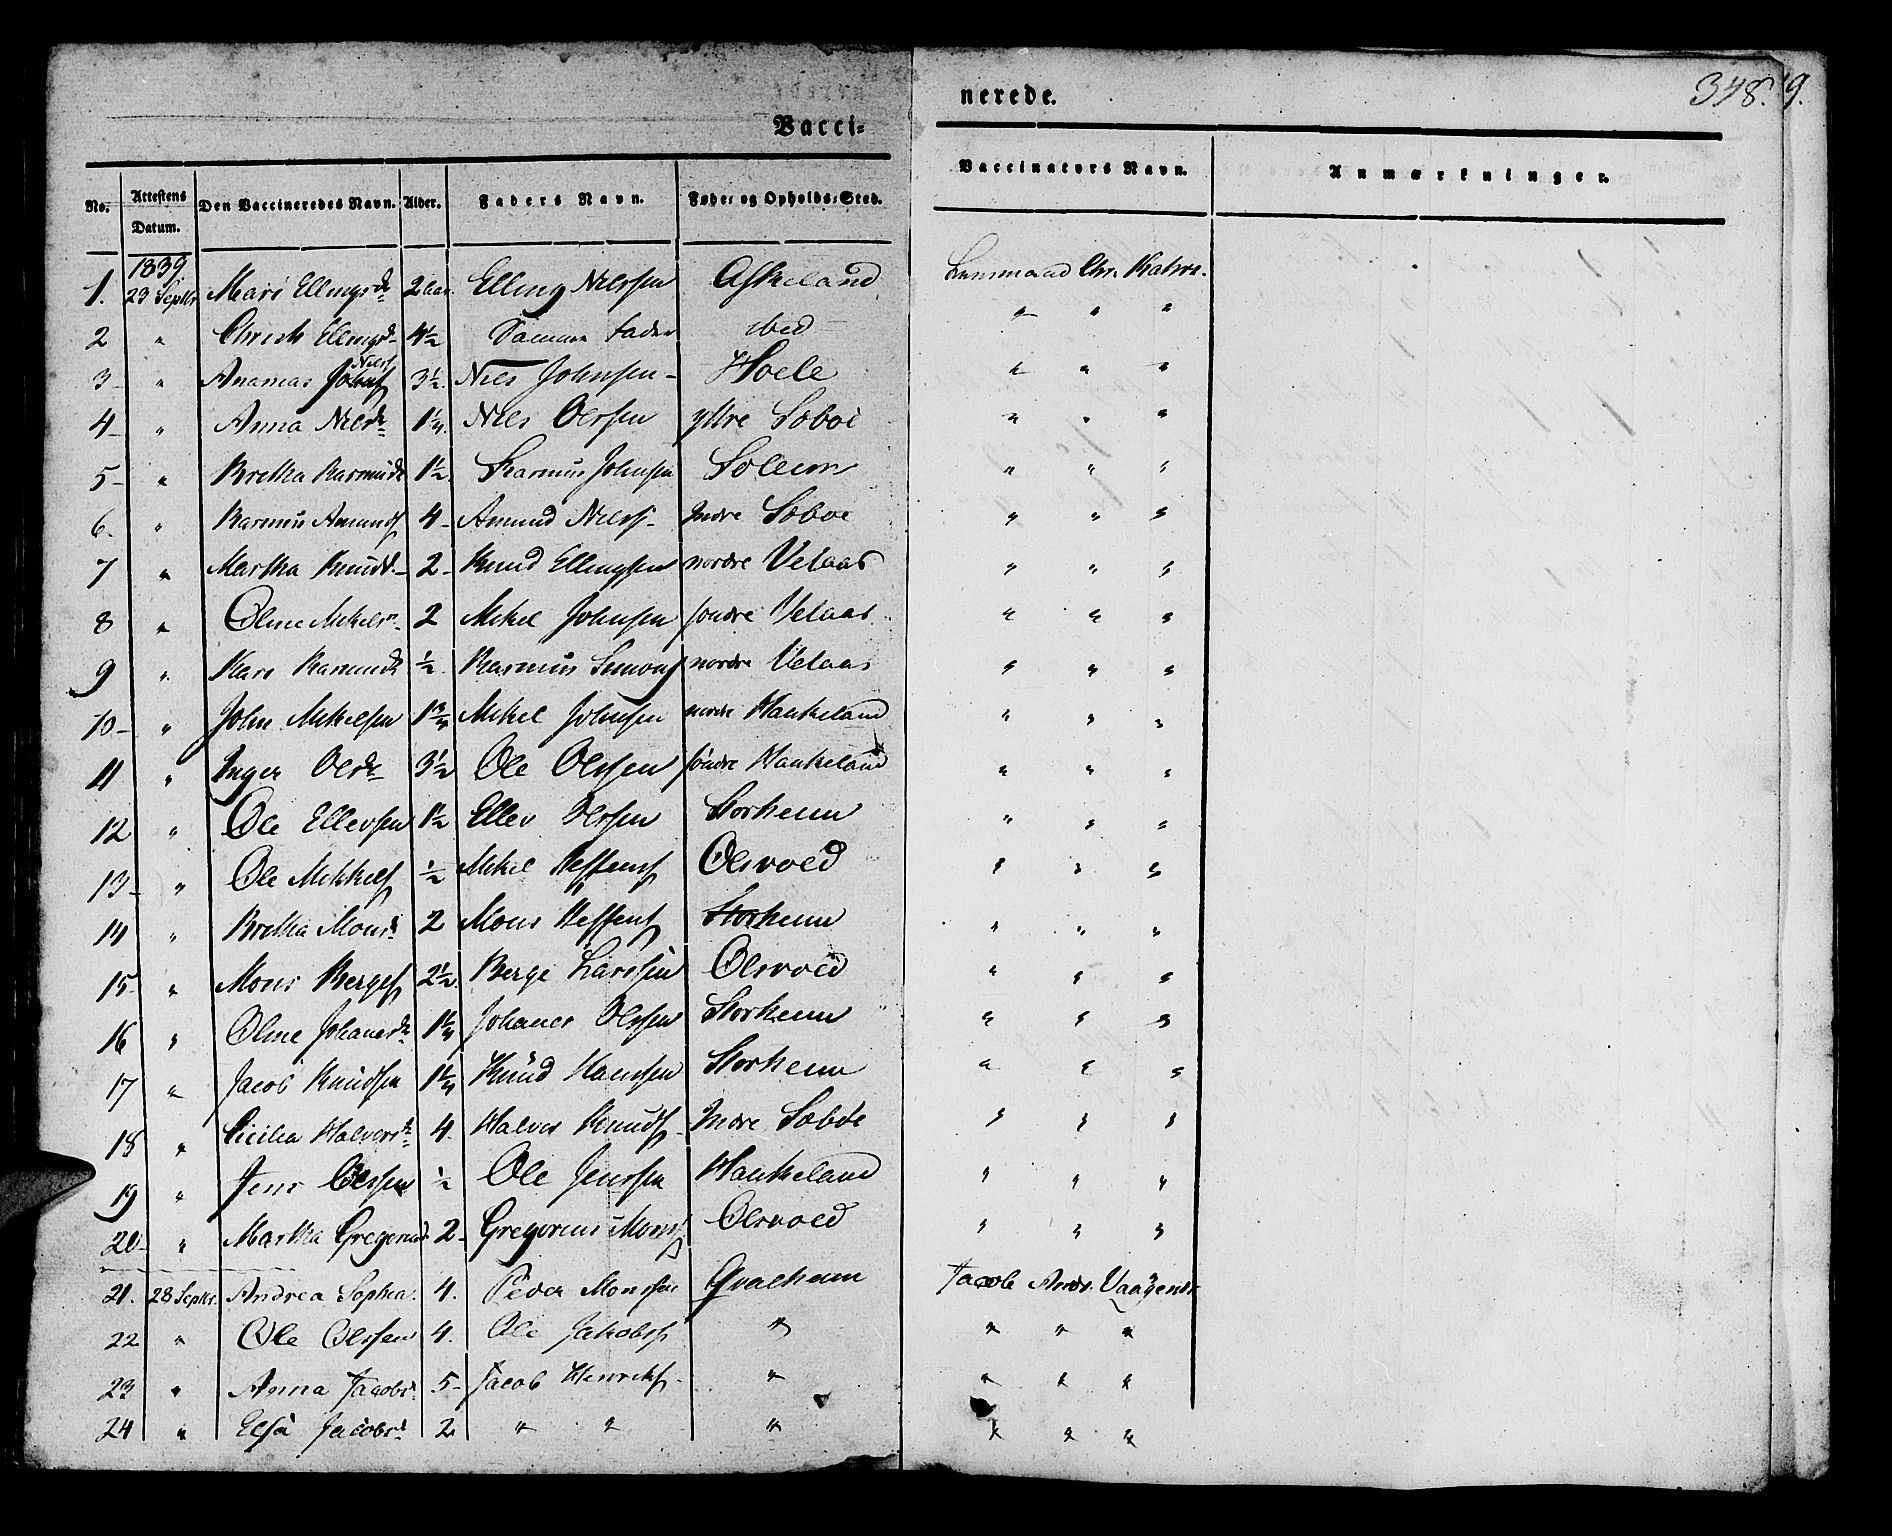 nerede.
348. 9.
Vacci=
No. Attestens Datum. Den Vaccineredes Navn. Alder. Faders Navn. Føde= og Opholds=Sted. Vaccinators Navn. Anmærkninger.
1839.
1. 23 Septbr Mari Ellingsdr 2 aar. Elling Nilssen Askeland Lensmand Chr.
2 " Christi Ellingsd 4½ Samme Fader ibd " " "
3 " Ananias Nilss Nils Johnsen 3½ Hole " " "
4 " Anna Nilsdr 1¼ Nils Olssen yttre Sæboe " " "
5 " Brethe Rasmusdr 1½ Rasmus Johnsen Soleim " " "
6. " Rasmus Amunds 4 Amund Nilss Indre Sæboe " " "
7 " Martha Knudsd. 2 Knud Ellingsen nordre Velaas " " "
8 " Oline Mikelsdr 2 Mikel Johnsen søndre Velaas " " "
9 " Kari Rasmusdr ½ Rasmus Simons nordre Velaas " " "
10 " John Mikelsen 1¾ Mikel Johnsen nordre Haukeland " " "
11 " Inger Olsdr 3½ Ole Olssen søndre Haukeland " " "
12 " Ole Ellevsen 1½ Ellev Olssen Storheim " " "
13 " Ole Mikkels ½ Mikel Steffens Olsvold " " "
14 " Brethe Monsd 2 Mons Steffens Storheim " " "
15 " Mons Berges 2½ Berge Larssen Olsvold " " "
16 " Oline Johanesdr 1¼ Johanes Olssen Storheim " " "
17 " Jacob Knudsen 1¼ Knud Hanssen Storheim " " "
18 " Cicilia Halvorsdr 4 Halvor Knuds Indre Sæboe " " "
19 " Jens Olssen ½ Ole Jenssen Haukeland " " "
20 " Martha Gregoriusd 2 Gregorius Mons Olsvold " " "
21. 28 Septbr. Andrea Sophia 4. Peder Monssen Qvalheim Jacob Ands. Vaagenes
22 " Ole Olssen 4. Ole Jakobs " " " "
23 " Anna Jacobsd 5 Jacob Henriks " " " "
24 " Elsa Jacobsd 2 " " " " " "